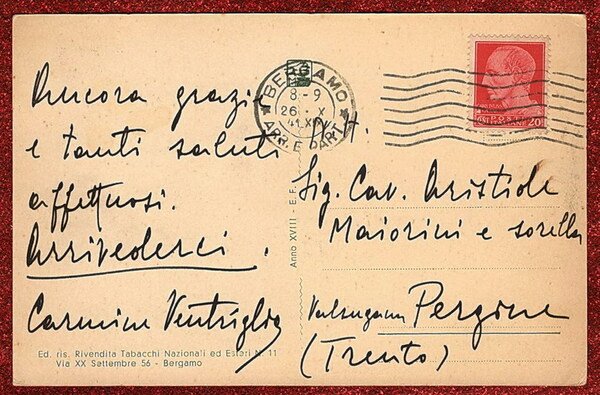 Ancora grazie
e tanti saluti
affettuosi.
Arrivederci.
Carmine Ventriglia
Ed. ris. Rivendita Tabacchi Nazionali ed Esteri N. 11
Via XX Settembre 56 - Bergamo
Anno XVIII - E. F.
BERGAMO
8-9
26 X
41 XIX
ARR. E PART.
20
Sig. Cav. Aristide
Maiorini e sorella
Valsugana Pergine
(Trento)